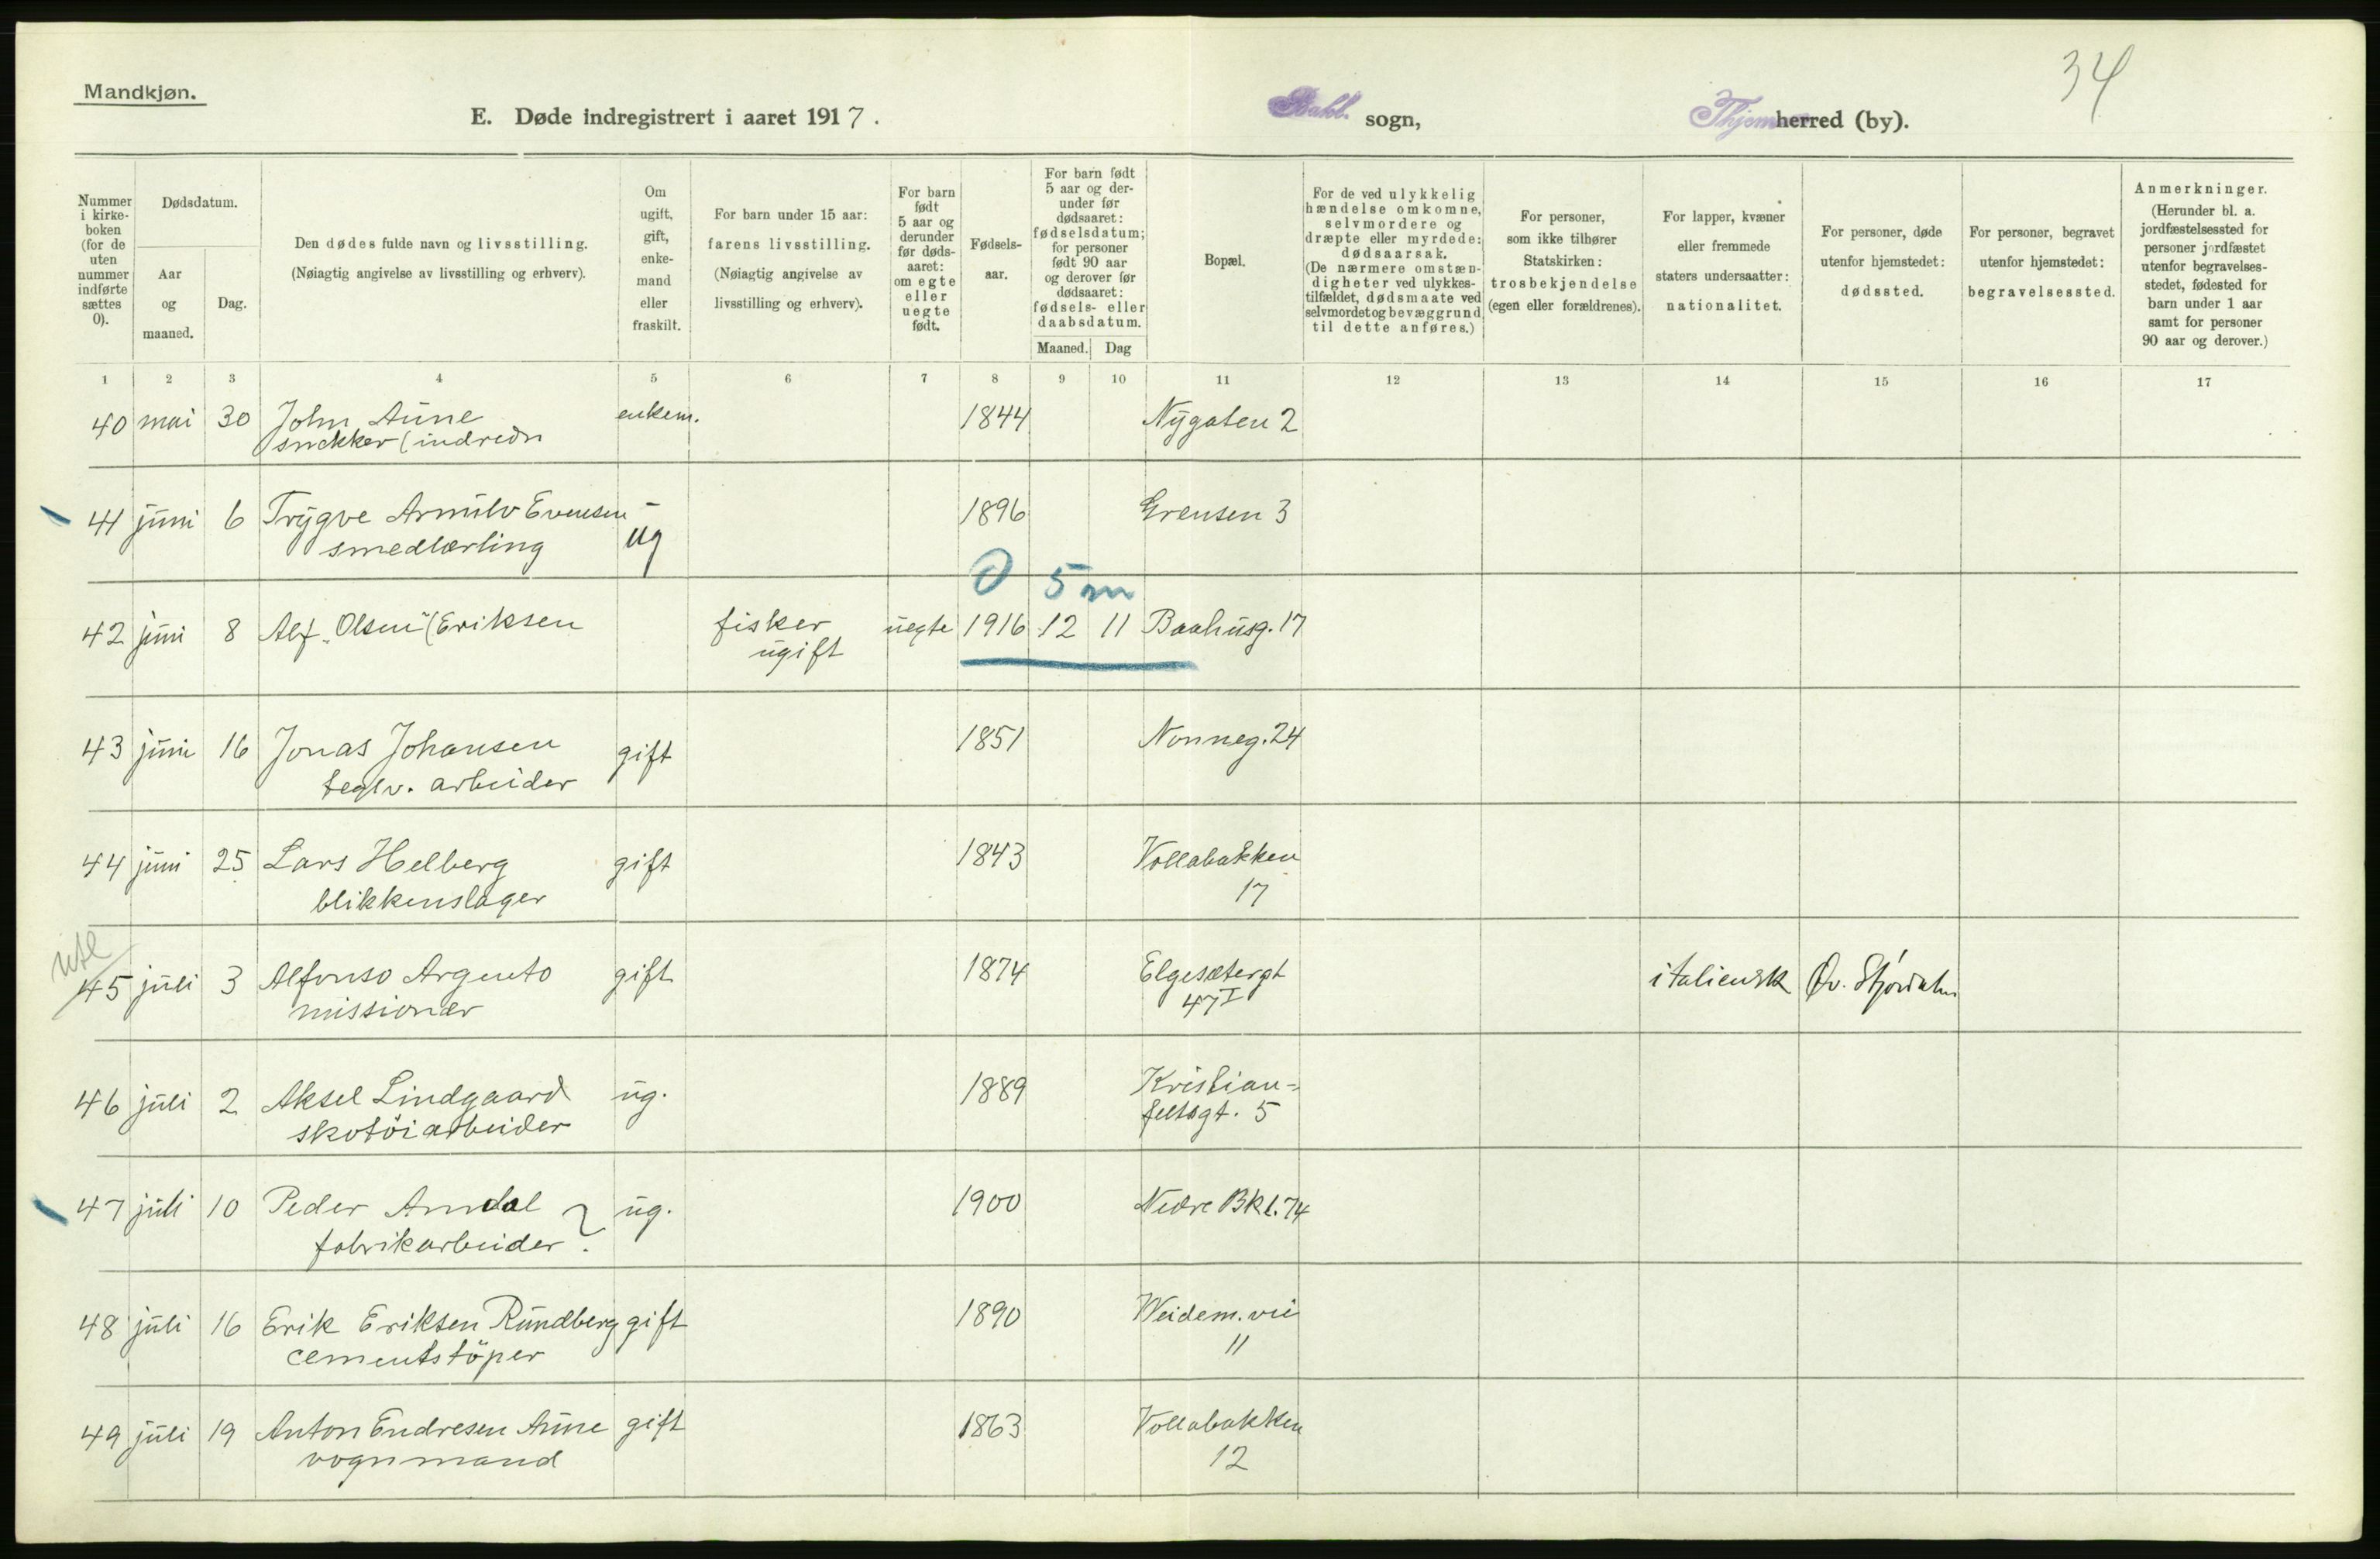 34
Mandkjøn.
E. Døde indregistrert i aaret 1917. Bakl. sogn, Thjem herred (by).
Nummer i kirke- boken (for de uten nummer indførte sættes 0).
Dødsdatum.
Aar og maaned.
Dag.
Den dødes fulde navn og livsstilling. (Nøiagtig angivelse av livsstilling og erhverv).
Om ugift, gift, enke- mand eller fraskilt.
For barn under 15 aar: farens livsstilling. (Nøiagtig angivelse av livsstilling og erhverv).
For barn født 5 aar og derunder før døds- aaret: om egte eller uegte født.
Fødsels- aar.
For barn født 5 aar og der- under før dødsaaret: fødselsdatum; for personer født 90 aar og derover før dødsaaret: fødsels- eller daabsdatum.
Maaned. Dag
Bopæl.
For de ved ulykkelig hændelse omkomne, selvmordere og dræpte eller myrdede: dødsaarsak. (De nærmere omstæn- digheter ved ulykkes- tilfældet, dødsmaate ved selvmordet og bevæggrund til dette anføres.)
For personer, som ikke tilhører Statskirken: trosbekjendelse (egen eller forældrenes).
For lapper, kvæner eller fremmede staters undersaatter: nationalitet.
For personer, døde utenfor hjemstedet: dødssted.
For personer, begravet utenfor hjemstedet: begravelsessted.
Anmerkninger. (Herunder bl. a. jordfæstelsessted for personer jordfæstet utenfor begravelses- stedet, fødested for barn under 1 aar samt for personer 90 aar og derover.)
1 2 3 4 5 6 7 8 9 10 11 12 13 14 15 16 17
40 mai 30 John Aune enkem. 1844 Nygaten 2
snekker (indredn
41 juni 6 Trygve Arnulv Evensen - 1896 Grensen 3
smedlærling ug
0 5 m
42 juni 8 Alf "Olsen" (Eriksen fisker uegte 1916 12 11 Baahusg. 17
ugift
43 juni 16 Jonas Johansen gift 1851 Nonneg. 24
teglv. arbeider
44 juni 25 Lars Helberg gift 1843 Vollabakken
blikkenslager 17
utl
45 juli 3 Alfonso Argento gift 1874 Elgesætergt italiensk Øv. Stjørdalen
missionær 47 I
46 juli 2 Aksel Lindgaard ug. 1889 Kristian-
skotöiarbeider feltsgt. 5
47 juli 10 Peder Amdal ug. 1900 Nedre Bkl. 74
fabrikarbeider ?
48 juli 16 Erik Eriksen Rundberg gift 1890 Weidem. vei
cementstöper 11
49 juli 19 Anton Endresen Aune gift 1863 Vollabakken
vognmand 12